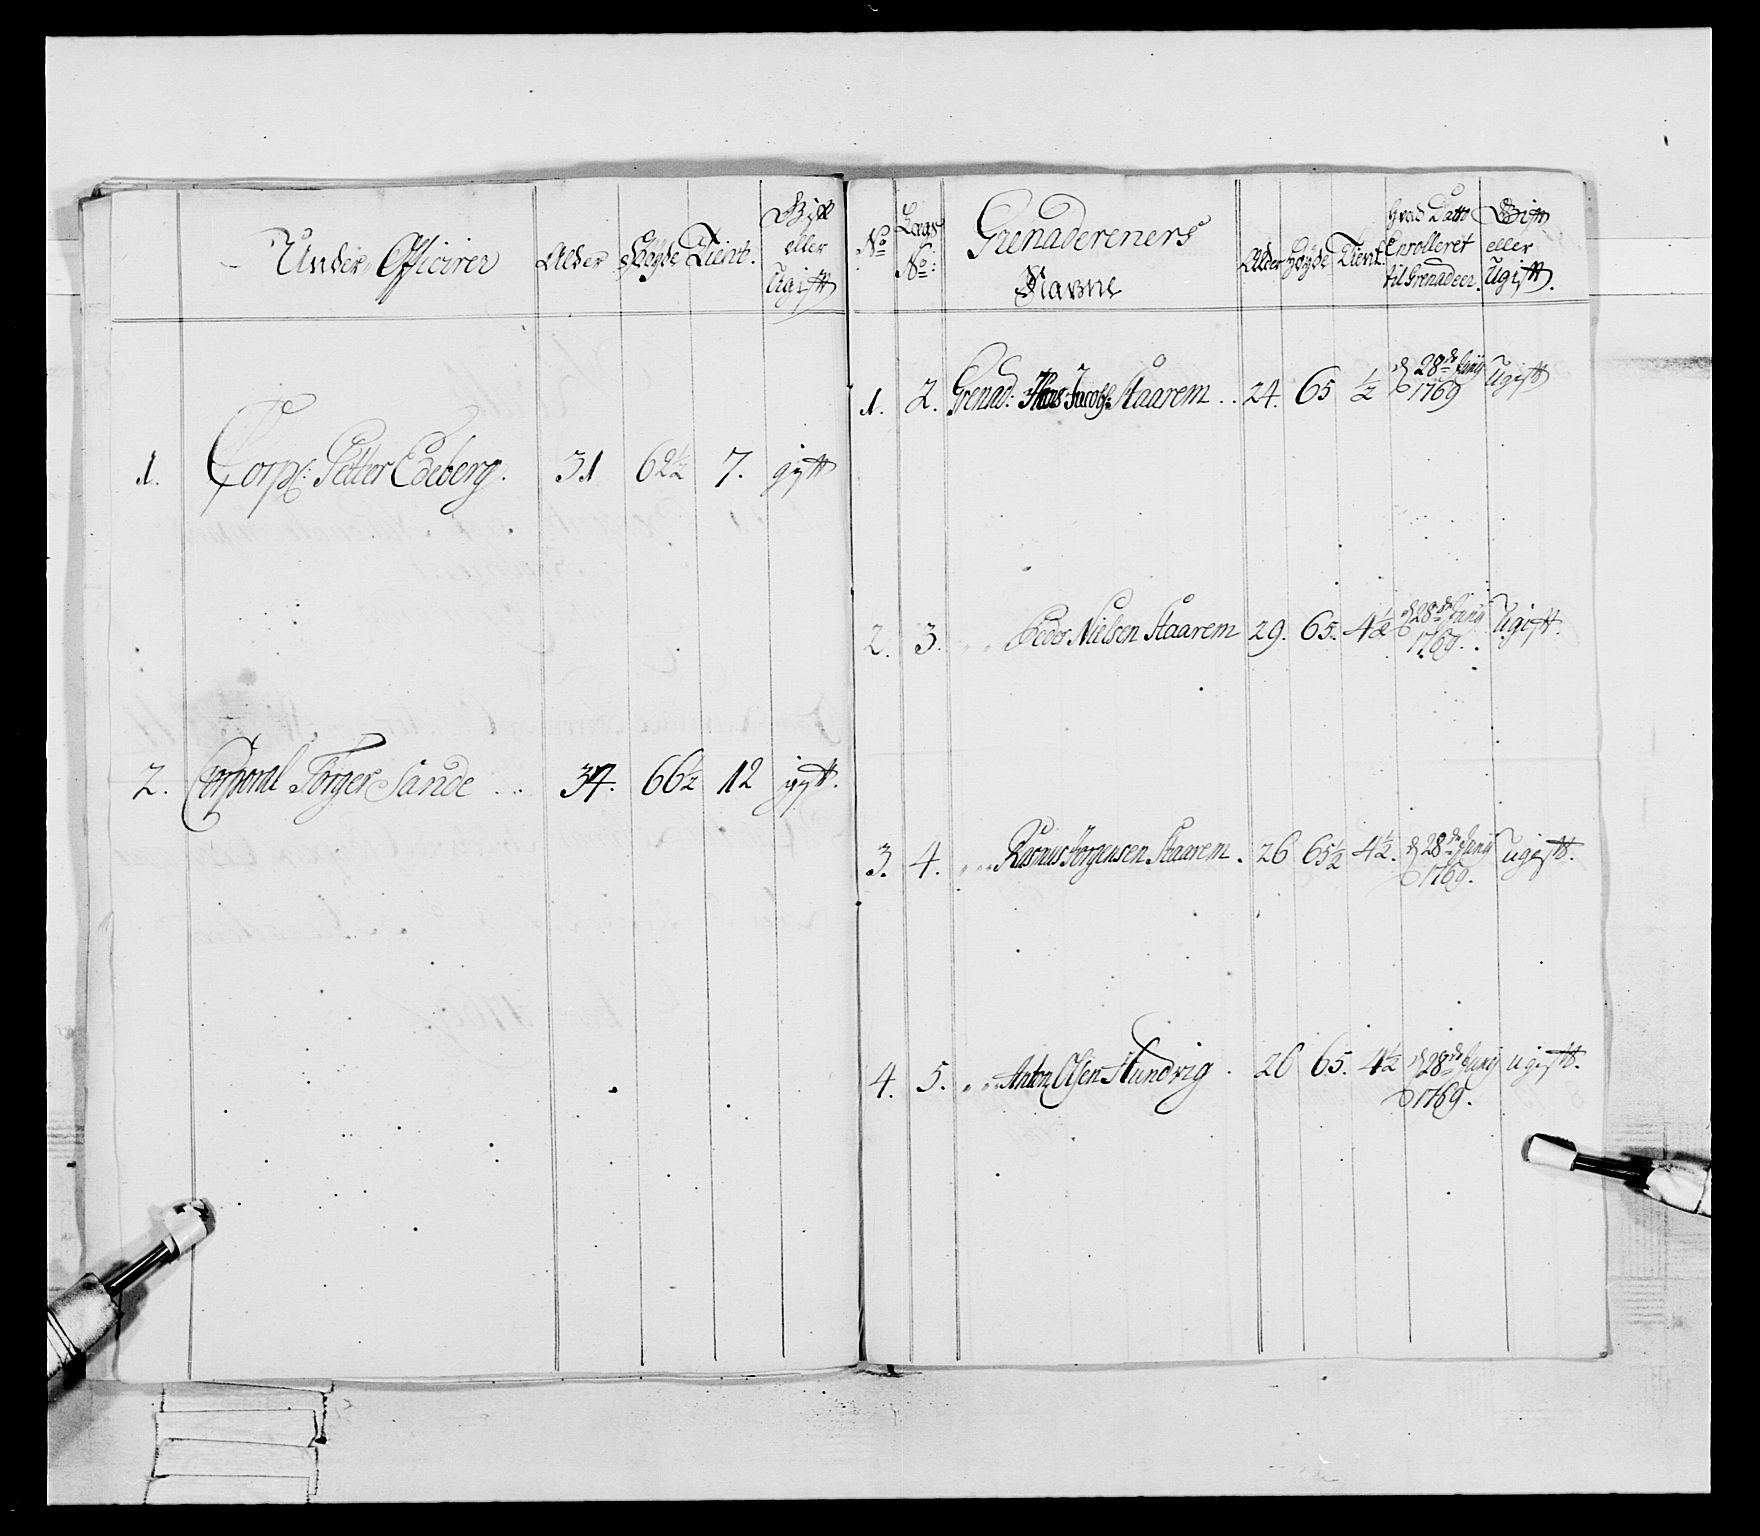 Under Officirer
Alder
Høyde
Tient.
Gift
eller
Ugift
1. Corpl: Petter Edeberg. 31 62½ 7. gift
2. Corporal Torger Sande .. 34. 66½ 12 gift.
No
Laegs
No:
Grenadereners
Navne
Alder
Høyde
Tient.
Hvad Datto
Enrolleret
til Grenadeer.
Gift
eller
Ugift.
1. 2. Grenad: Jacobs: Staarem .. 24. 65 ½ d 28de Junij Ugift
1769
2. 3. Peder Nielsen Staarem 29. 65. 4½ d 28de Junij Ugift.
1769.
3. 4. Rasmus Jørgensen Staarem. 26 65½ 4½. d 28de Junij ugift.
1769.
4. 5. Anton Olsen Hundvig. 26 65. 4½ d 28de Junij ugift.
1769.